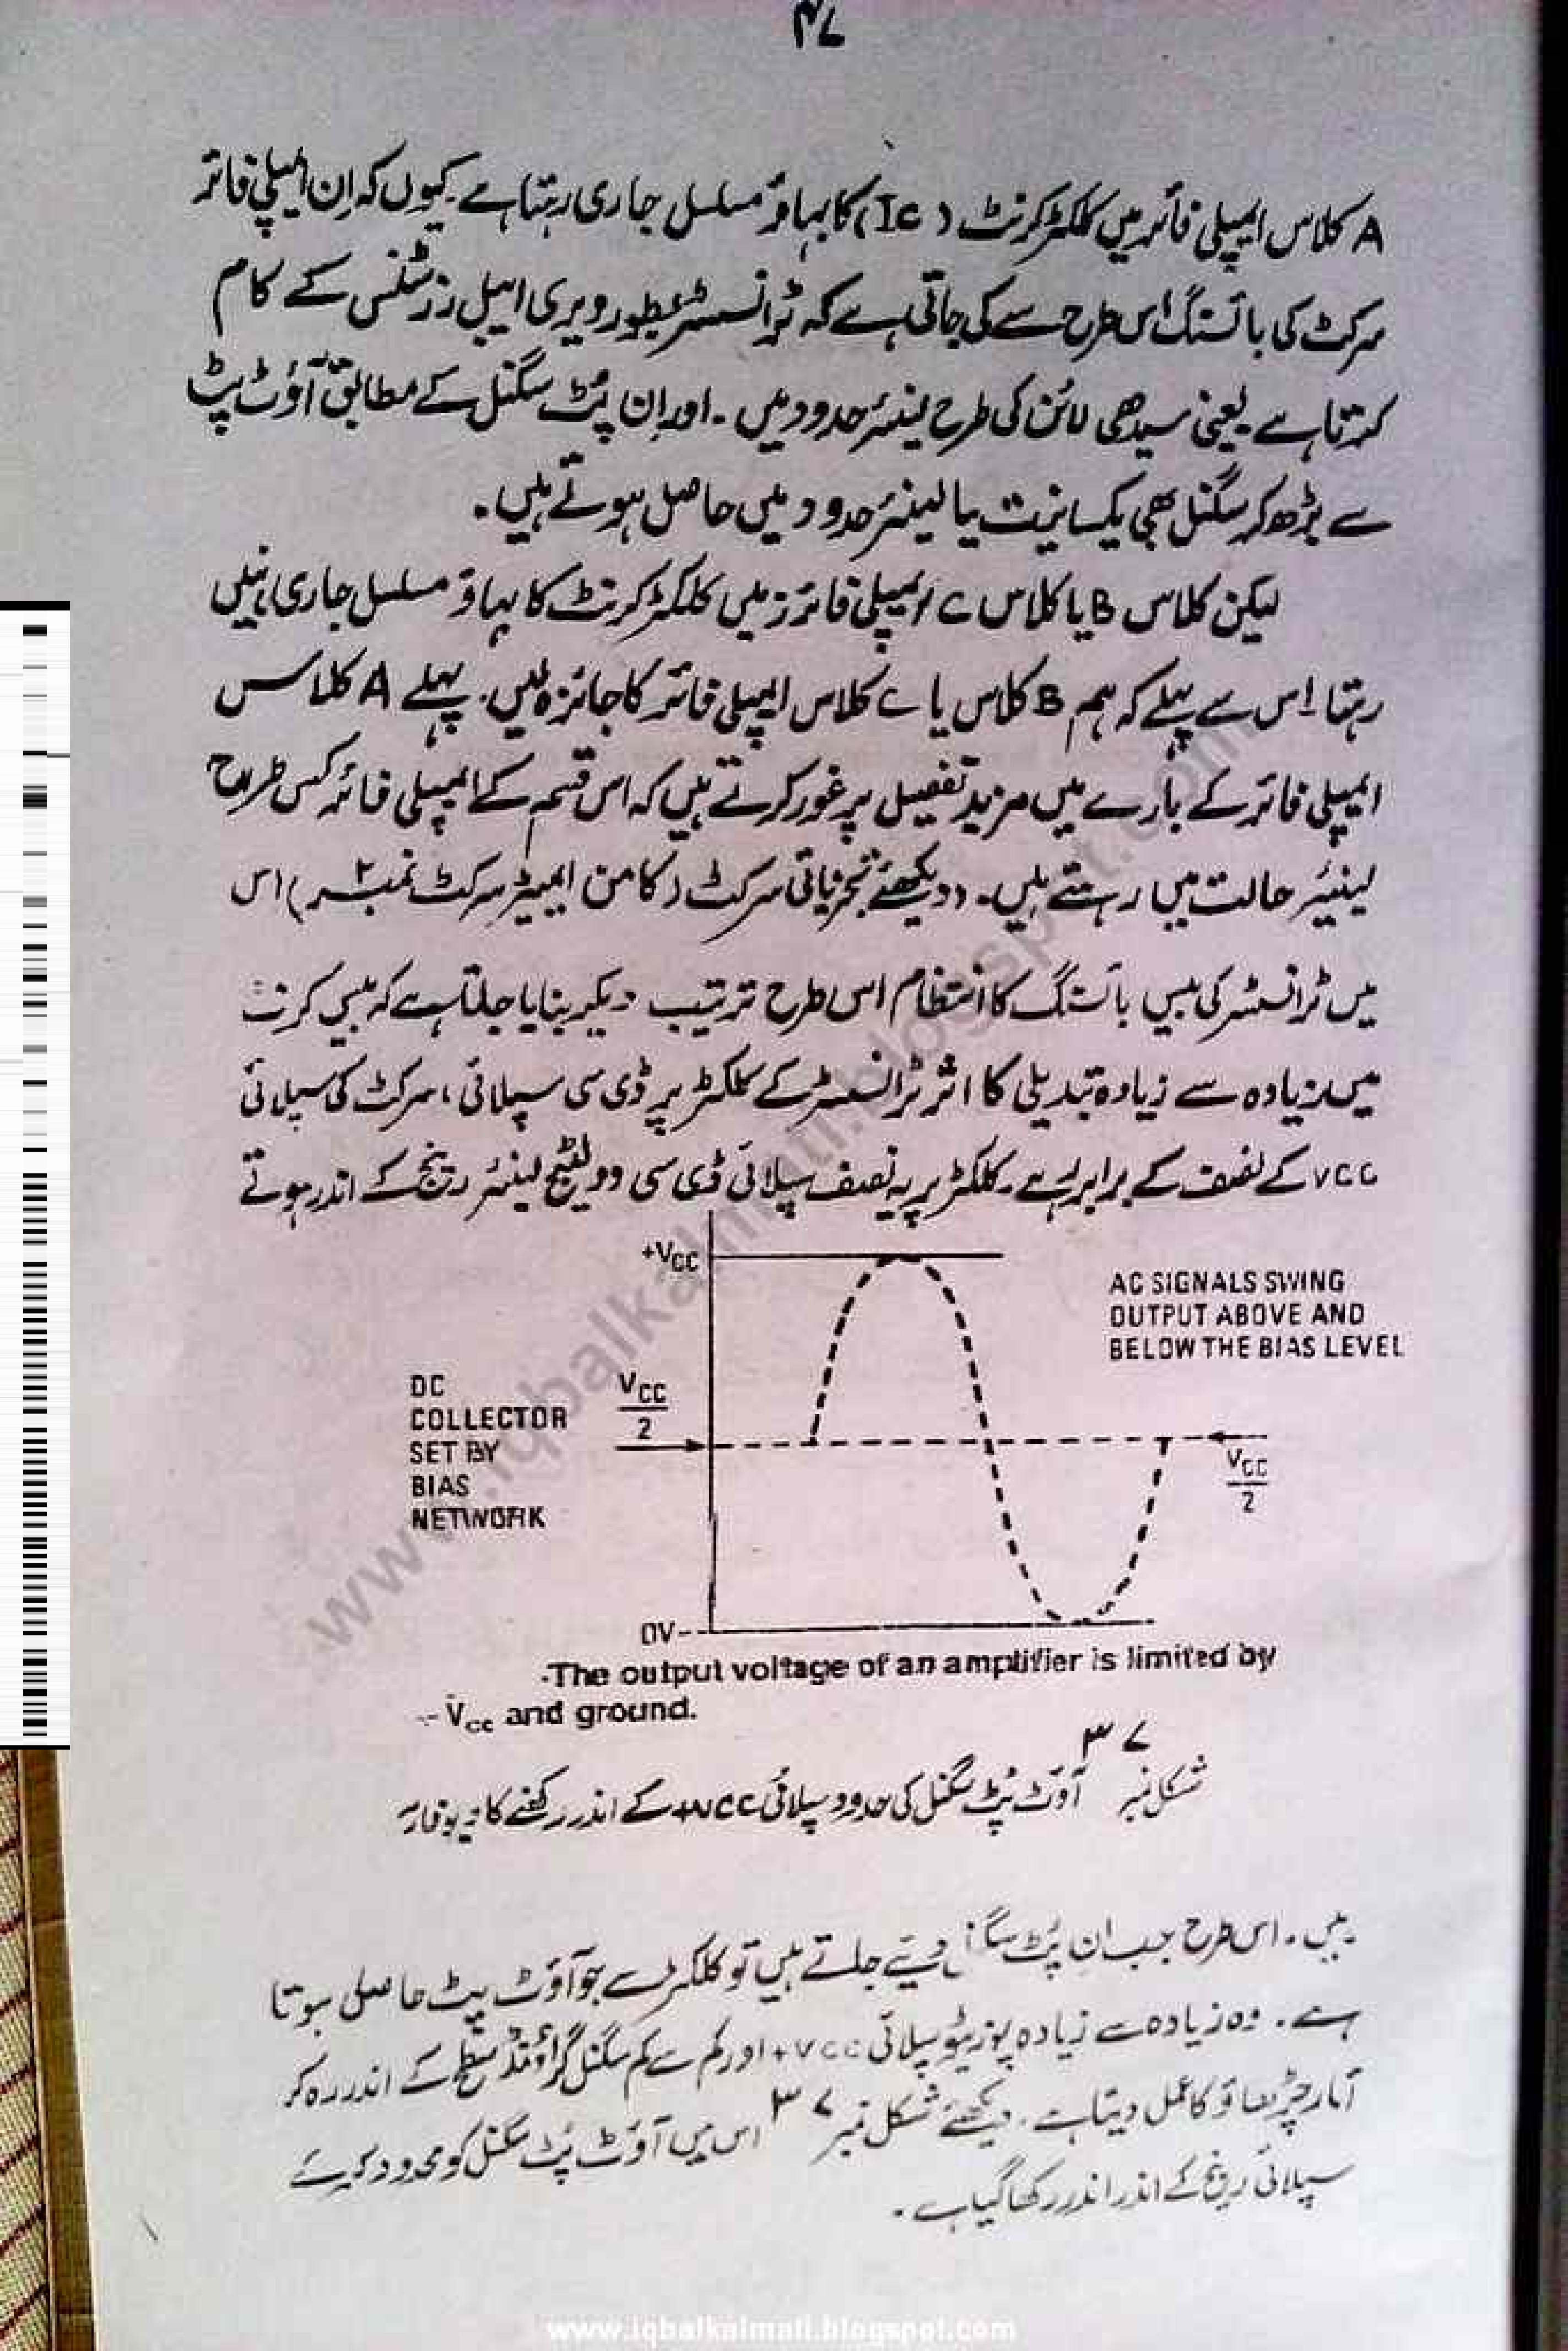 ۴۷
A کلاس ایمپلی فائر میں کلکٹر کرنٹ (Ic) کا بہاؤ مسلسل جاری رہتا ہے۔ کیوں کہ اِن ایمپلی فائر
سرکٹ کی بائسنگ اس طرح سے کی جاتی ہے کہ ٹرانسسٹر بطور ویری ایبل رزسٹنس کے کام
کرتا ہے یعنی سیدھی لائن کی طرح لینیئر حدود میں۔ اور اِن پُٹ سگنل کے مطابق آؤٹ پٹ
سے بڑھ کر سگنل بھی یکسانیت یا لینیئر حدود میں حاصل ہوتے ہیں۔
لیکن کلاس B یا کلاس C ایمپلی فائرز میں کلکٹر کرنٹ کا بہاؤ مسلسل جاری نہیں
رہتا اس سے پہلے کہ ہم B کلاس یا C کلاس ایمپلی فائر کا جائزہ لیں۔ پہلے A کلاس
ایمپلی فائر کے بارے میں مزید تفصیل پر غور کرتے ہیں کہ اس قسم کے ایمپلی فائر کس طرح
لینیئر حالت میں رہتے ہیں۔ (دیکھئے تجزیاتی سرکٹ (کامن ایمیٹر سرکٹ نمبر ۲) اس
میں ٹرانسسٹر کی بیس بائسنگ کا انتظام اس طرح ترتیب دیکر بنایا جاتا ہے کہ بیس کرنٹ
میں زیادہ سے زیادہ تبدیلی کا اثر ٹرانسسٹر کے کلکٹر پر ڈی سی سپلائی، سرکٹ کی سپلائی
VCC کے نصف کے برابر ہے۔ کلکٹر پر یہ نصف سپلائی ڈی سی وولٹیج لینیئر رینج کے اندر ہوتے
+VCC
AC SIGNALS SWING
OUTPUT ABOVE AND
BELOW THE BIAS LEVEL
DC
COLLECTOR
SET BY
BIAS
NETWORK
VCC
2
VCC
2
0V
The output voltage of an amplifier is limited by
Vcc and ground.
شکل نمبر ۳۷ آؤٹ پُٹ سگنل کی حدود سپلائی +VCC کے اندر رکھنے کا
ہیں۔ اس طرح جب ان پُٹ سگنل دیئے جاتے ہیں تو کلکٹر سے جو آؤٹ پٹ حاصل ہوتا
ہے۔ وہ زیادہ سے زیادہ پوزیٹو سپلائی +VCC اور کم سے کم سگنل گراؤنڈ سطح کے اندر رہ کر
اُتار چڑھاؤ کا عمل دیتا ہے۔ دیکھئے شکل نمبر ۳۷ اس میں آؤٹ پُٹ سگنل کو محدود کرکے
سپلائی رینج کے اندر اندر رکھا گیا ہے۔
www.iqbalkalmati.blogspot.com
www.iqbalkalmati.blogspot.com